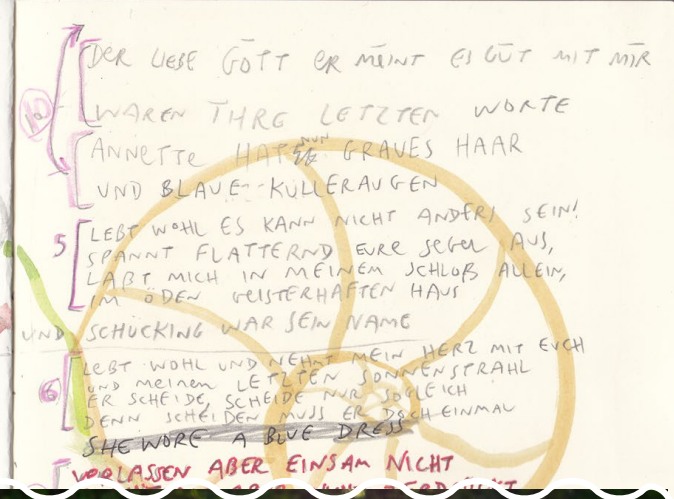 DER LIEBE GOTT ER MEINT ES GUT MIT MIR
10
WAREN IHRE LETZTEN WORTE
ANNETTE HAT NUN GRAUES HAAR
UND BLAUE KULLERAUGEN
5
LEBT WOHL ES KANN NICHT ANDERS SEIN!
SPANNT FLATTERND EURE SEGEL AUS,
LAßT MICH IN MEINEM SCHLOß ALLEIN,
IM ÖDEN GEISTERHAFTEN HAUS
UND SCHUCKING WAR SEIN NAME
6
LEBT WOHL UND NEHMT MEIN HERZ MIT EUCH
UND MEINEN LETZTEN SONNENSTRAHL
ER SCHEIDE, SCHEIDE NUR SOGLEICH
DENN SCHEIDEN MUSS ER DOCH EINMAL
SHE WORE A BLUE DRESS
VORLASSEN ABER EINSAM NICHT